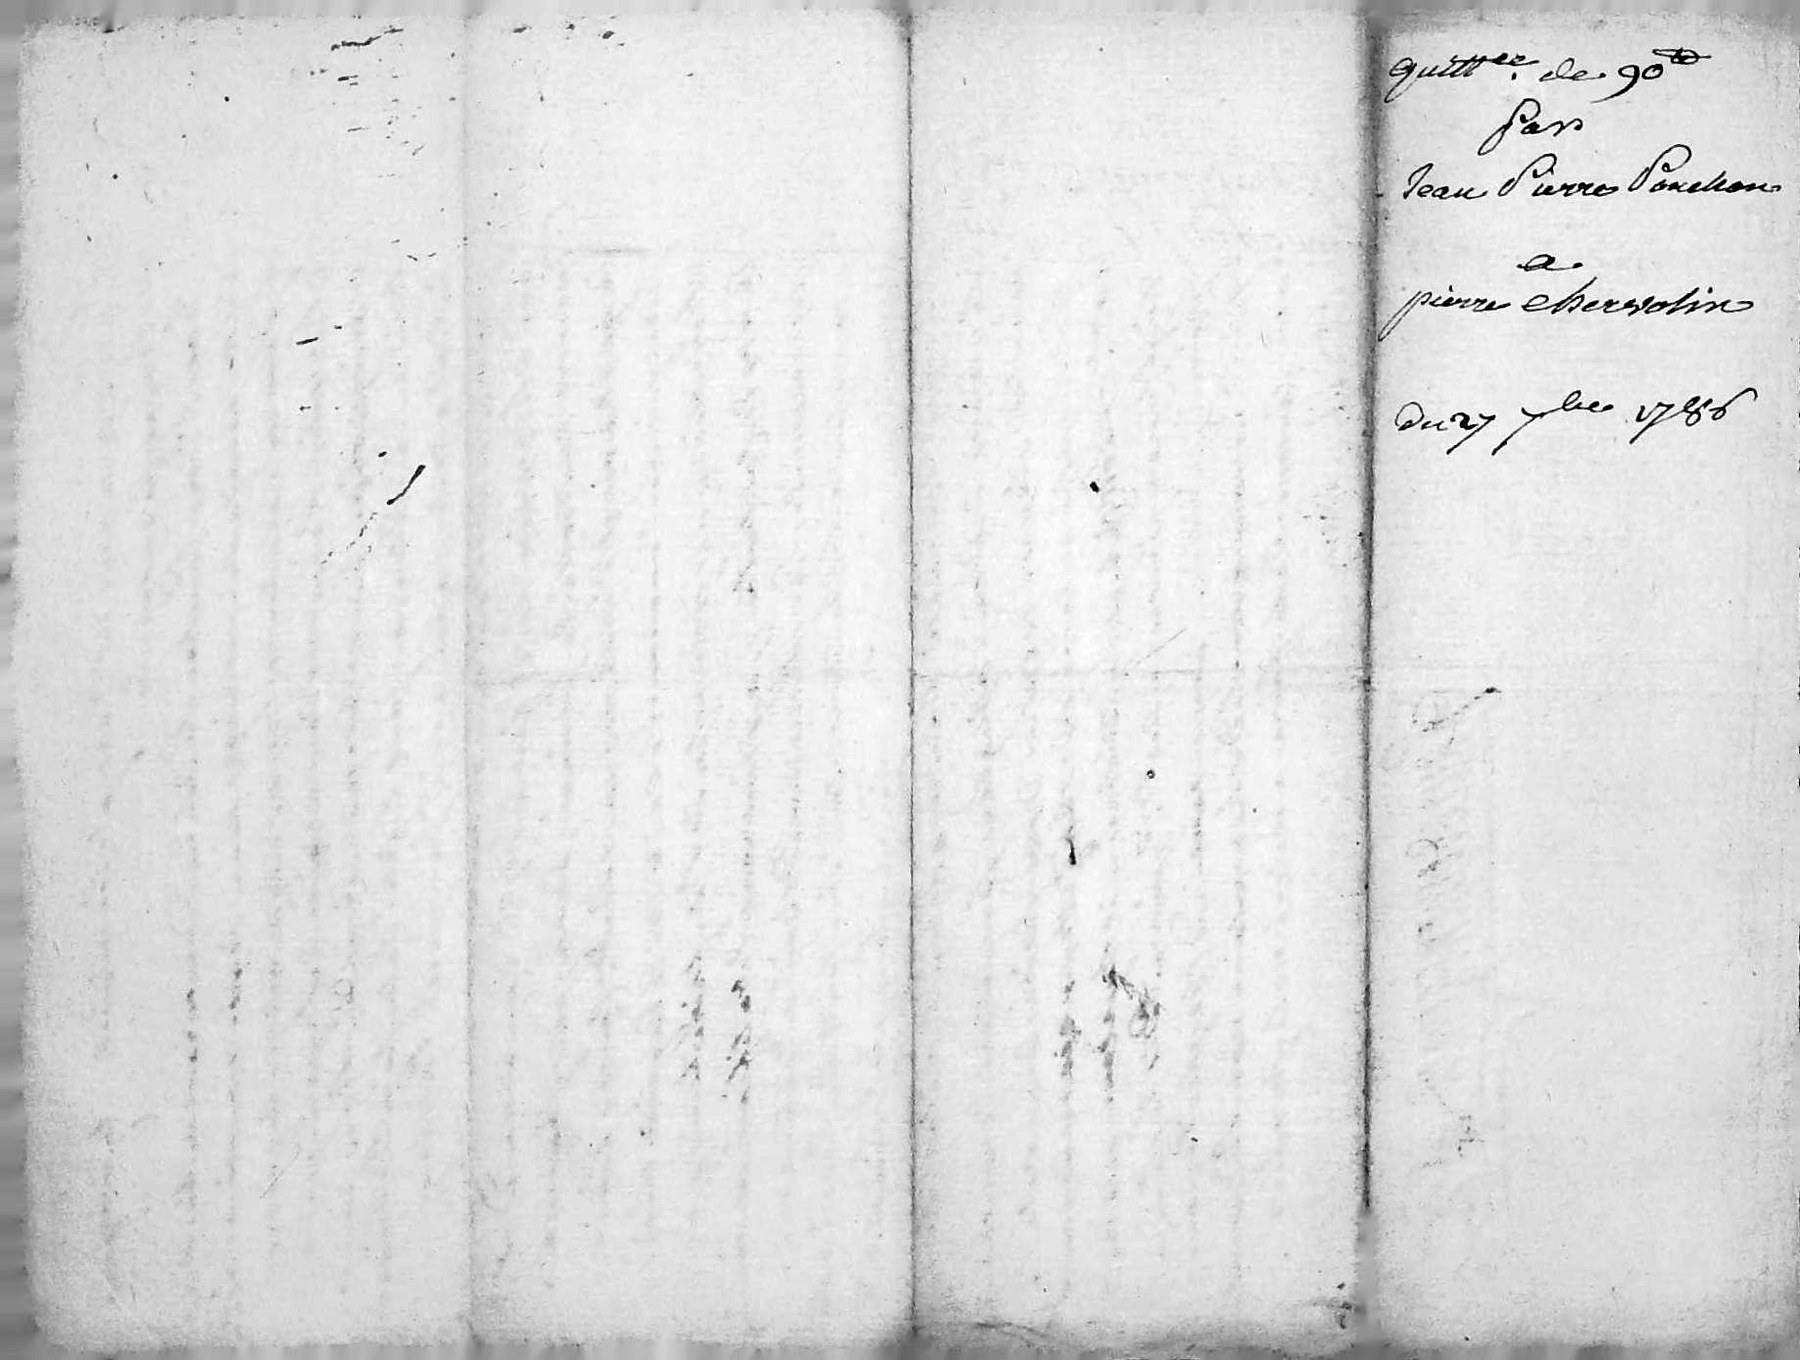 quittce. de 90 ₶
par
Jean Pierre Ponchon
a
pierre chervolin
du 27 7bre 1786